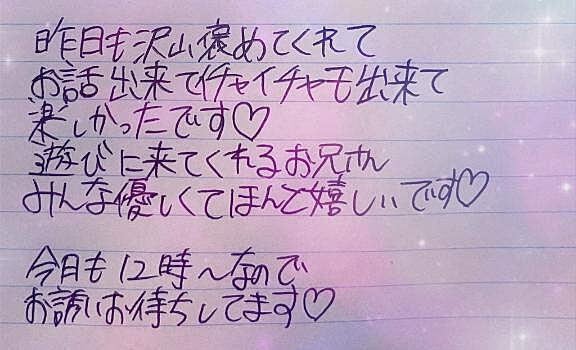 昨日も沢山褒めてくれて
お話出来てイチャイチャモ出来て
楽しかったです♡
遊びに来てくれるお兄さん
みんな優しくてほんと嬉しいです♡
今日も12時～なので
お誘いお待ちしてます♡